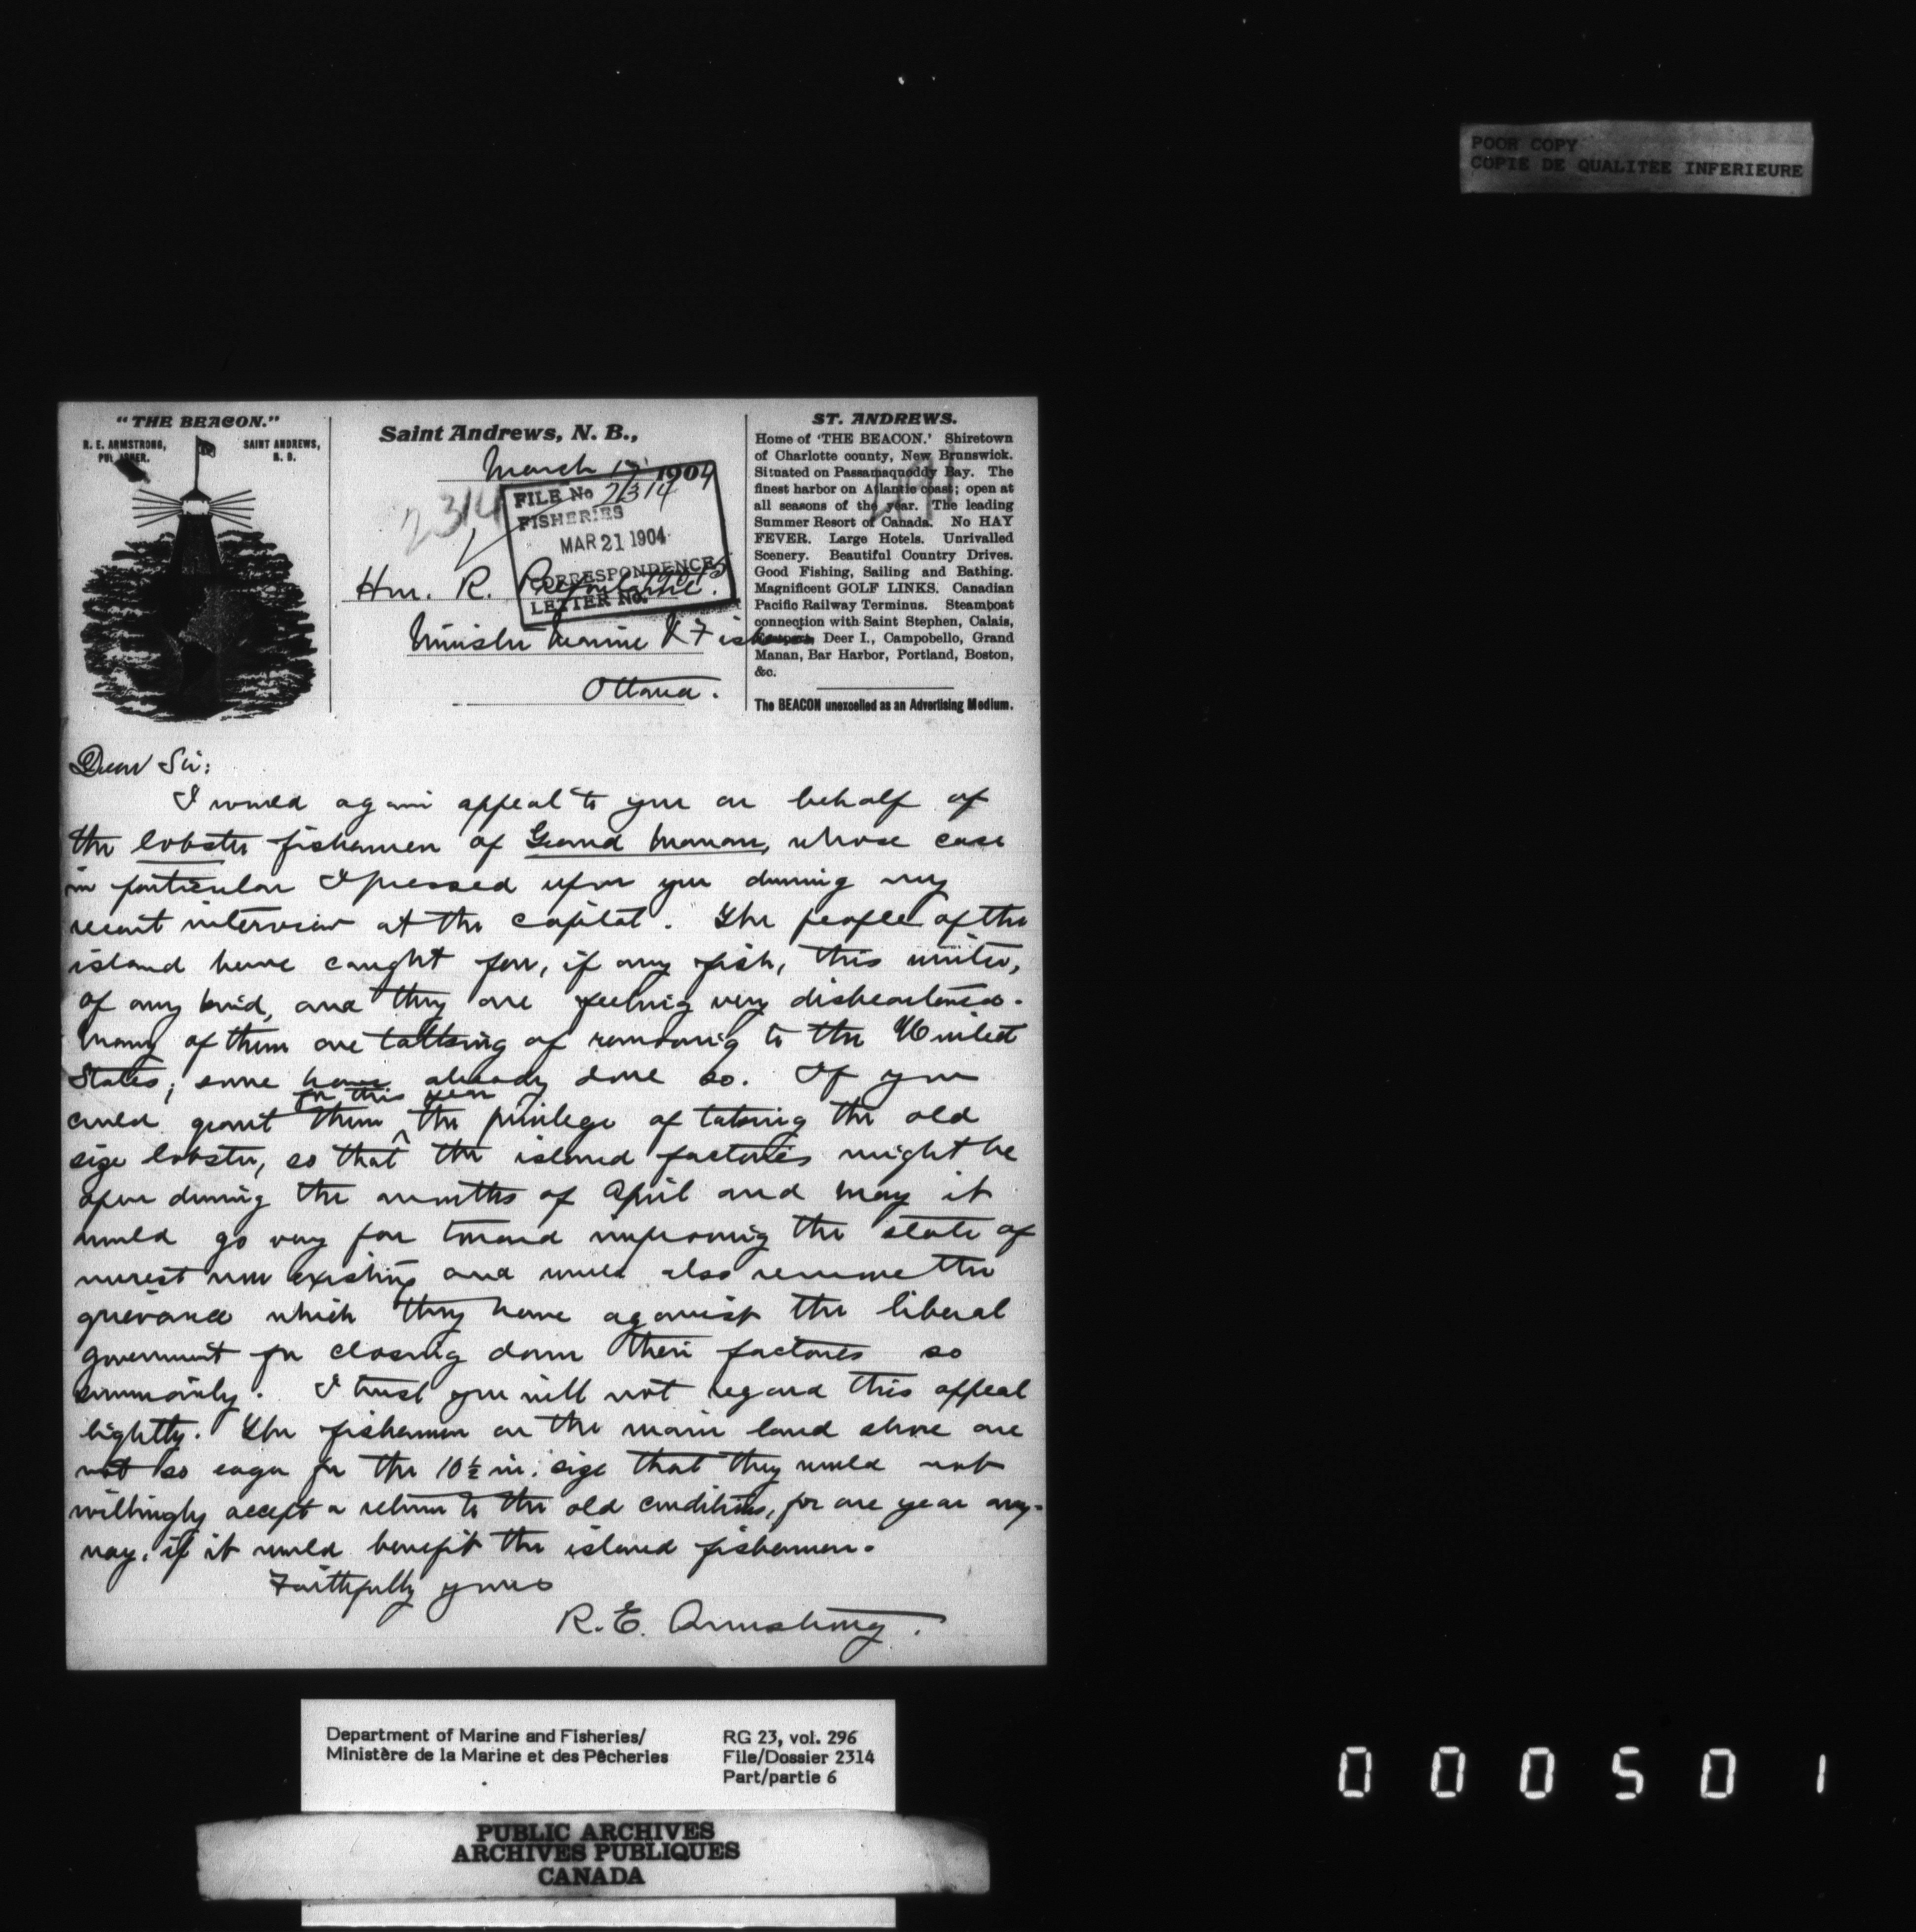 POOR COPY
COPIE DE QUALITEE INFERIEURE
"THE BEACON."
R. E. ARMSTRONG,
PUBLISHER.
SAINT ANDREWS,
N. B.
Saint Andrews, N. B.,
March 17 1904
2314
FILE No 2314
FISHERIES
MAR 21 1904
CORRESPONDENCE
LETTER No.
Hon. R. Prefontaine.
Minister Marine & Fisheries
Ottawa.
ST. ANDREWS.
Home of 'THE BEACON.' Shiretown
of Charlotte county, New Brunswick.
Situated on Passamaquoddy Bay. The
finest harbor on Atlantic coast; open at
all seasons of the year. The leading
Summer Resort of Canada. No HAY
FEVER. Large Hotels. Unrivalled
Scenery. Beautiful Country Drives.
Good Fishing, Sailing and Bathing.
Magnificent GOLF LINKS. Canadian
Pacific Railway Terminus. Steamboat
connection with Saint Stephen, Calais,
Deer I., Campobello, Grand
Manan, Bar Harbor, Portland, Boston,
&c.
The BEACON unexcelled as an Advertising Medium.
Dear Sir:
I would again appeal to you on behalf of
the lobster fishermen of Grand Manan, whose case
in particular I pressed upon you during my
recent interview at the capital. The people of the
island have caught few, if any fish, this winter,
of any kind, and they are feeling very disheartened.
Many of them are talking of removing to the United
States; some have already done so. If you
for this year
could grant them the privilege of taking the old
size lobster, so that the island factories might be
open during the months of April and May it
would go very far toward improving the state of
unrest now existing and would also remove the
grievance which they have against the liberal
government for closing down their factories so
summarily. I trust you will not regard this appeal
lightly. The fishermen on the main land shore are
not so eager for the 10½ in. size that they would not
willingly accept a return to the old conditions, for one year any-
way, if it would benefit the island fishermen.
Faithfully yours
R. E. Armstrong.
Department of Marine and Fisheries/
Ministère de la Marine et des Pêcheries
RG 23, vol. 296
File/Dossier 2314
Part/partie 6
PUBLIC ARCHIVES
ARCHIVES PUBLIQUES
CANADA
000501